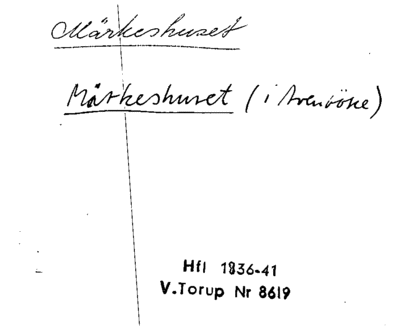 Märkeshuset
Märkeshuset (i
Hfl 1836-41
V.Torup Nr 8619